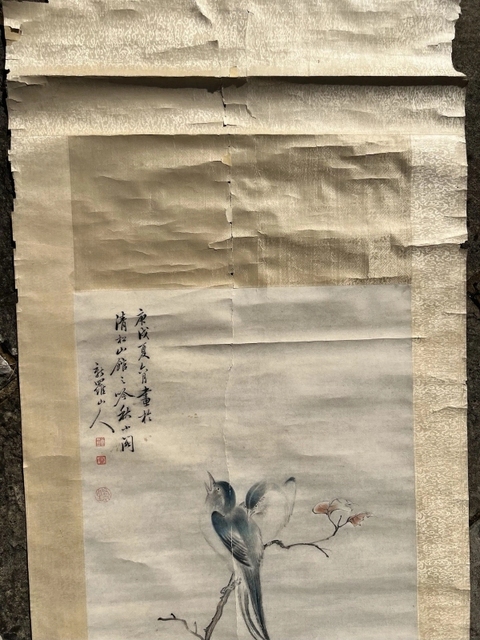 庚戌夏六月畫於
清松山館之吟秋小閣
新羅山人